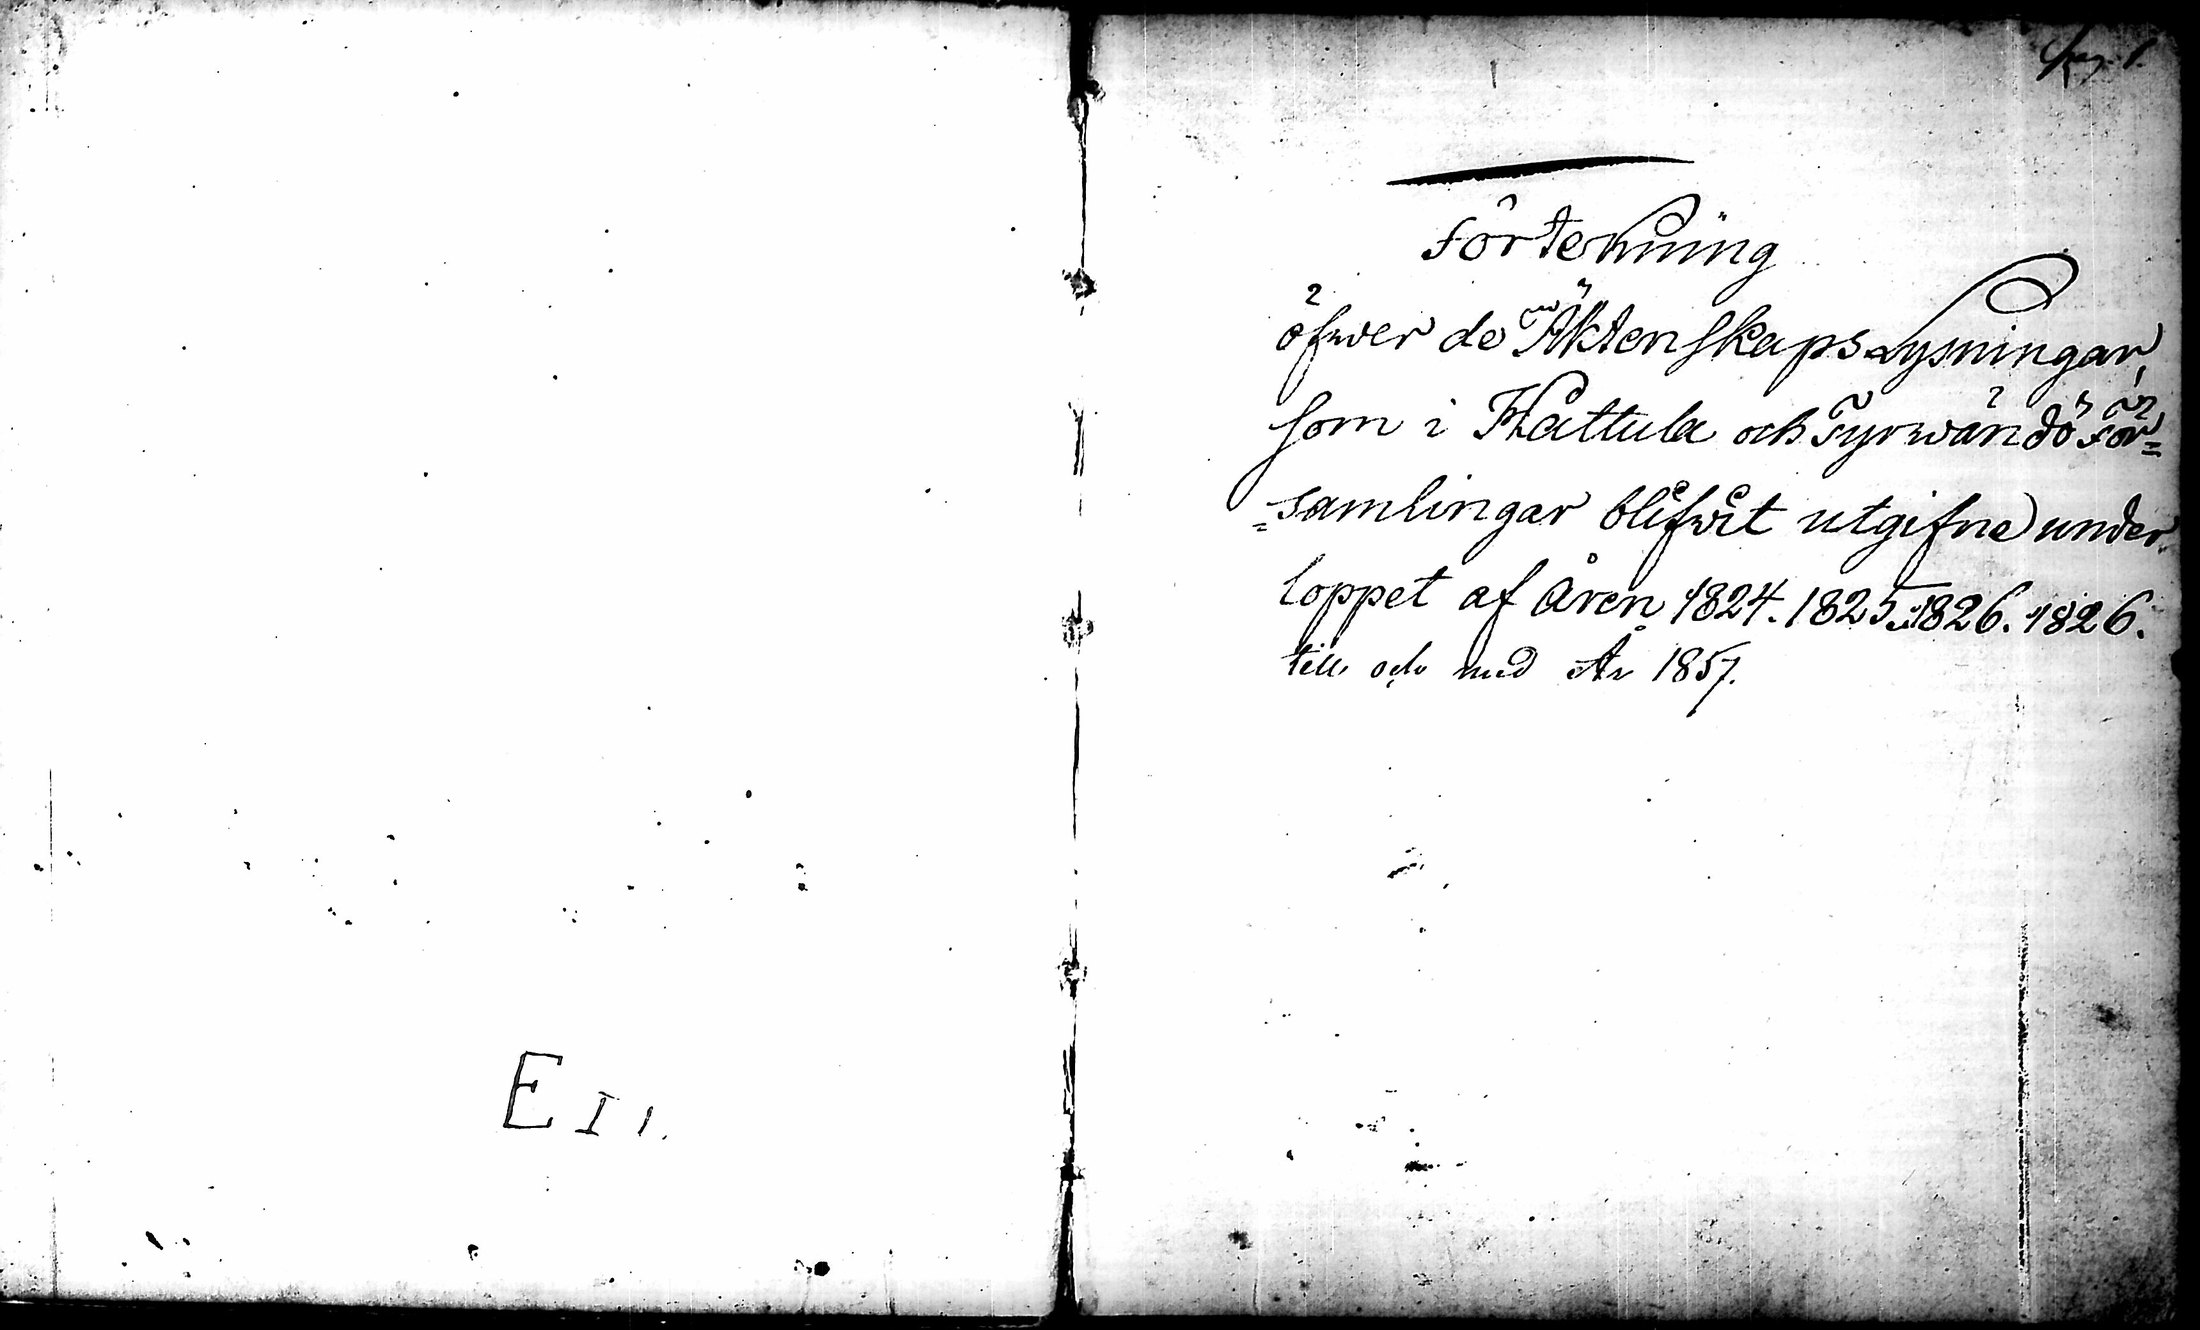 E I 1.
Pag. 1.
Förtekning
öfwer de Äktenskaps Lysningar,
som i Hattula och Tyrwändö För=
=samlingar blifwit utgifne under
loppet af åren 1824. 1825. 1826. 1826.
till och med År 1857.